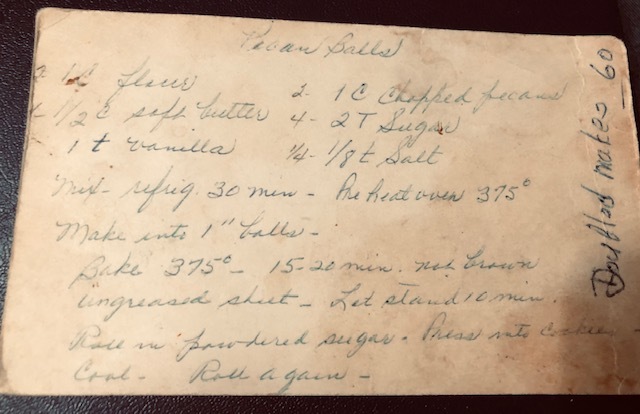 Pecan Balls
2 1 C flour
2- 1 C Chopped pecans
1- 1/2 C soft butter
4- 2 T Sugar
1 t vanilla
1/4- 1/8 t Salt
Mix- refrig. 30 min - Pre heat oven 375°
Make into 1" balls-
Bake 375° - 15-20 min. not brown
ungreased sheet - Let stand 10 min.
Roll in powdered sugar. Press into cookie
Cool - Roll again -
Doubled makes 60